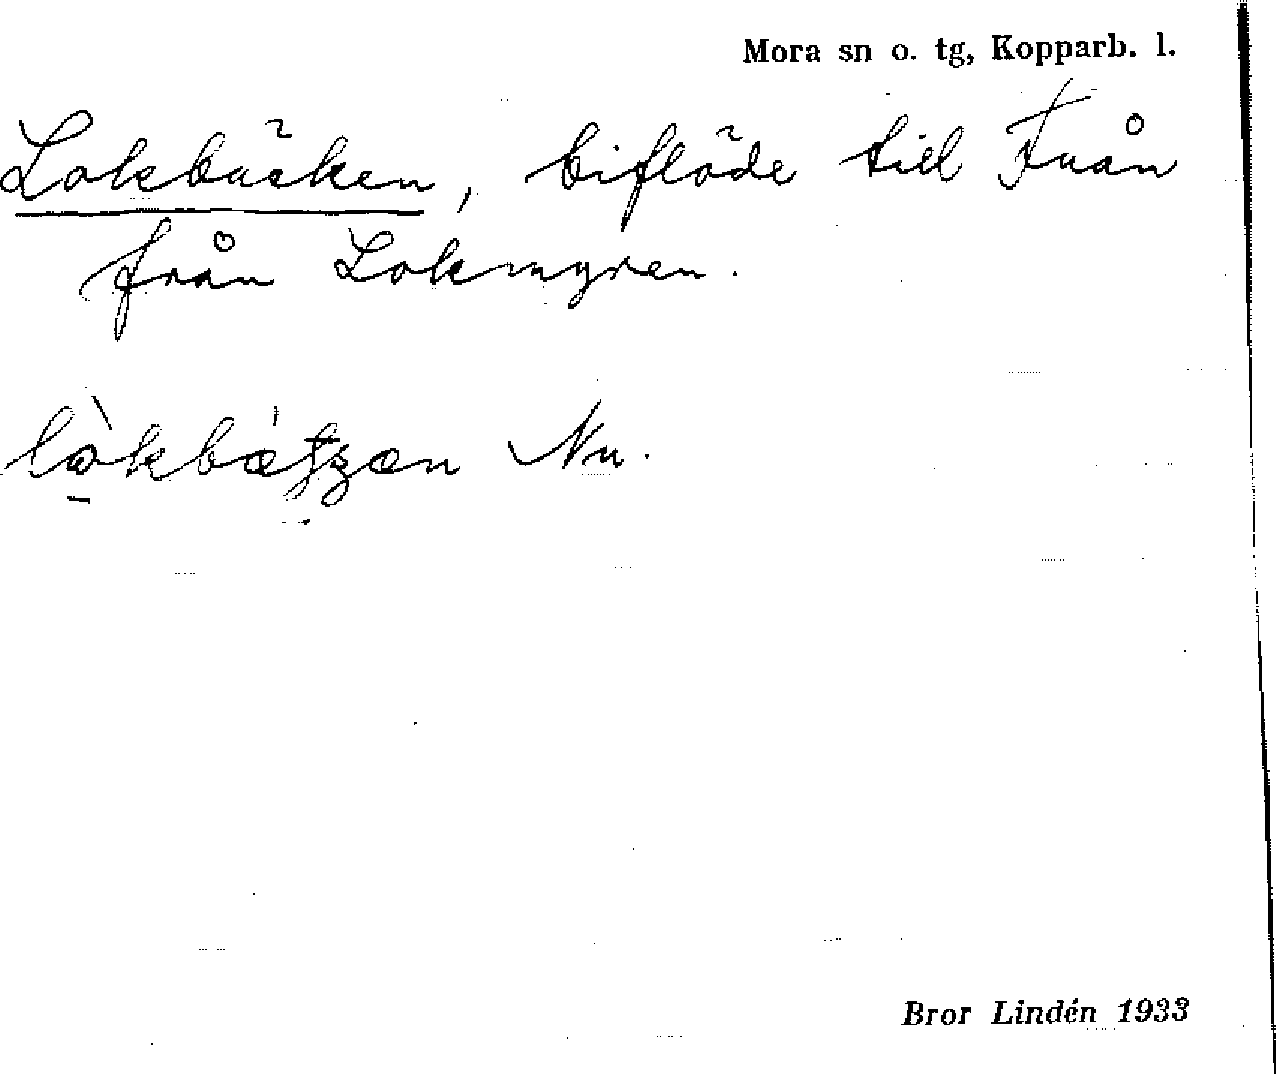 Mora sn o. tg, Kopparb. l.
Lokbäcken, biflöde till Fuån
från Lokmyren.
Nu.
Bror Lindén 1933